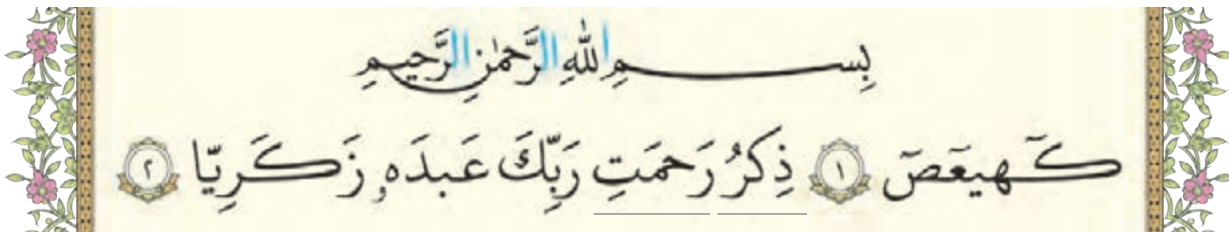 بِسمِ اللهِ الرَّحمٰنِ الرَّحيمِ
كٓهيعٓصٓ ﴿١﴾ ذِكرُ رَحمَتِ رَبِّكَ عَبدَهُ زَكَرِيّا ﴿٢﴾